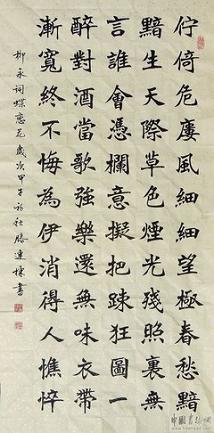 佇倚危廔風細細望極春愁黯
黯生天際草色煙光殘照裏無
言誰會憑欄意擬把踈狂圖一
醉對酒當歌強樂還無味衣帶
漸寬終不悔為伊消得人憔悴
柳永詞蝶戀花歲次甲書